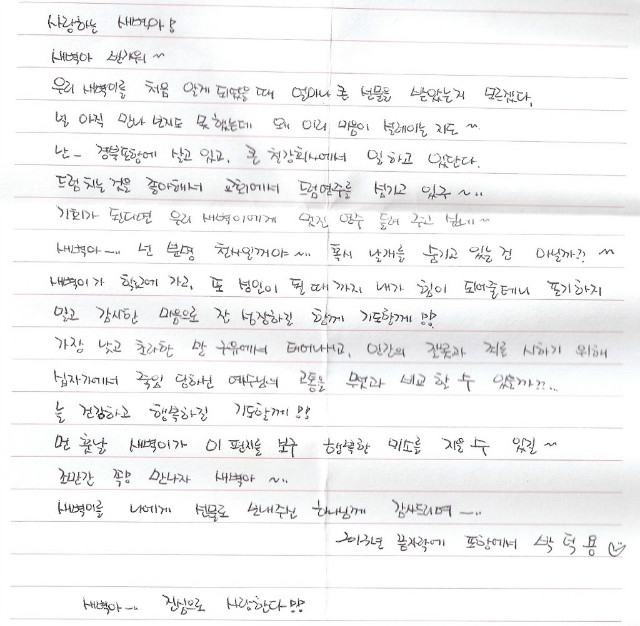 사랑하는 새벽아!
새벽아 반가워~
우리 새벽이를 처음 알게 되었을 때 얼마나 큰 선물을 받았는지 모르겠다.
널 아직 만나 보지도 못 했는데 왜 이리 마음이 설레이는 지도~
난~ 경북포항에 살고 있고, 큰 철강회사에서 일 하고 있단다.
드럼 치는 것을 좋아해서 교회에서 드럼연주를 섬기고 있구~..
기회가 된다면 우리 새벽이에게 멋진 연주 들려 주고 싶네~
새벽아~.. 넌 분명 천사일꺼야~.. 혹시 날개를 숨기고 있는 건 아닐까?? ~
새벽이가 학교에 가고, 또 성인이 될 때 까지 내가 힘이 되어줄테니 포기하지
말고 감사한 마음으로 잘 성장하길 함께 기도할께!!
가장 낮고 초라한 말 구유에서 태어나시고, 인간의 잘못과 죄를 사하기 위해
십자가에서 죽임 당하신 예수님의 고통을 무엇과 비교 할 수 있을까??...
늘 건강하고 행복하길 기도할께!!
먼 훗날 새벽이가 이 편지를 보구 행복한 미소를 지을 수 있길~
조만간 꼭! 만나자 새벽아~..
새벽이를 나에게 선물로 보내주신 하나님께 감사드리며~..
2013년 끝자락에 포항에서 박덕용
새벽아~.. 진심으로 사랑한다!!